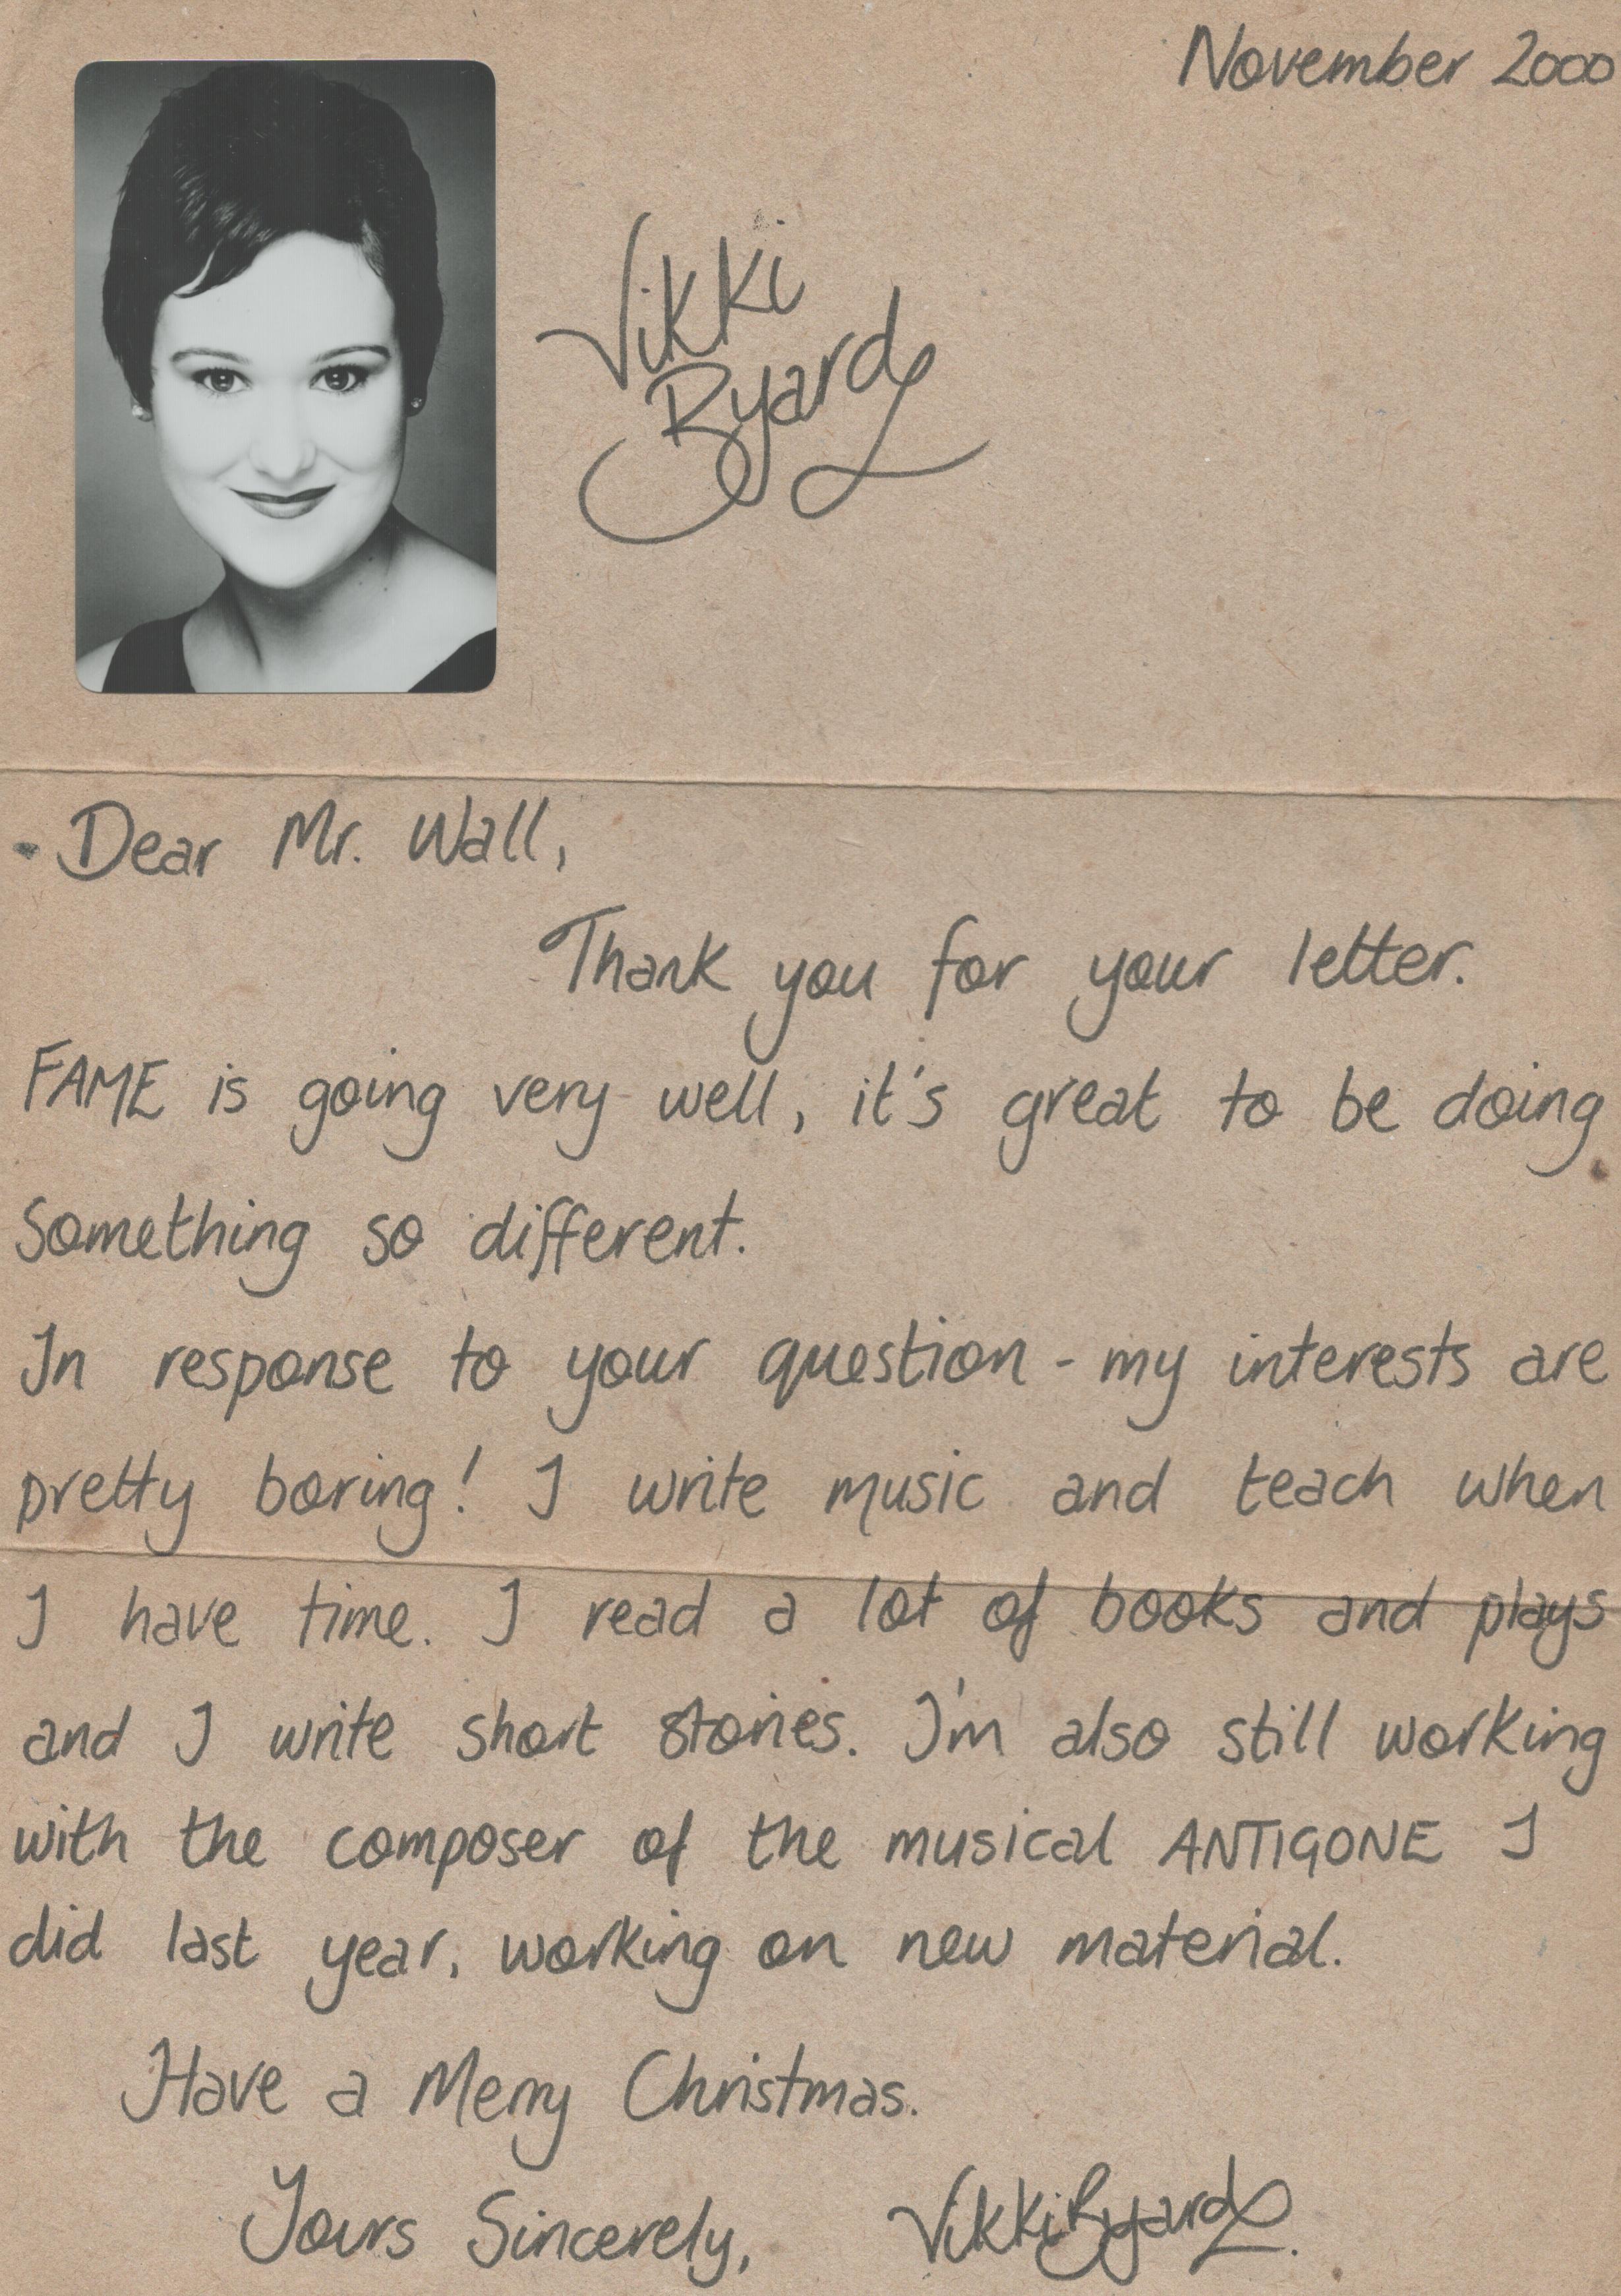 November 2000
Vikki
Ryard
Dear Mr. Wall,
Thank you for your letter.
FAME is going very well, it's great to be doing
something so different.
In response to your question - my interests are
pretty boring! I write music and teach when
I have time. I read a lot of books and plays
and I write short stories. I'm also still working
with the composer of the musical ANTIGONE I
did last year, working on new material.
Have a Merry Christmas.
Yours Sincerely, Vikki Ryard.